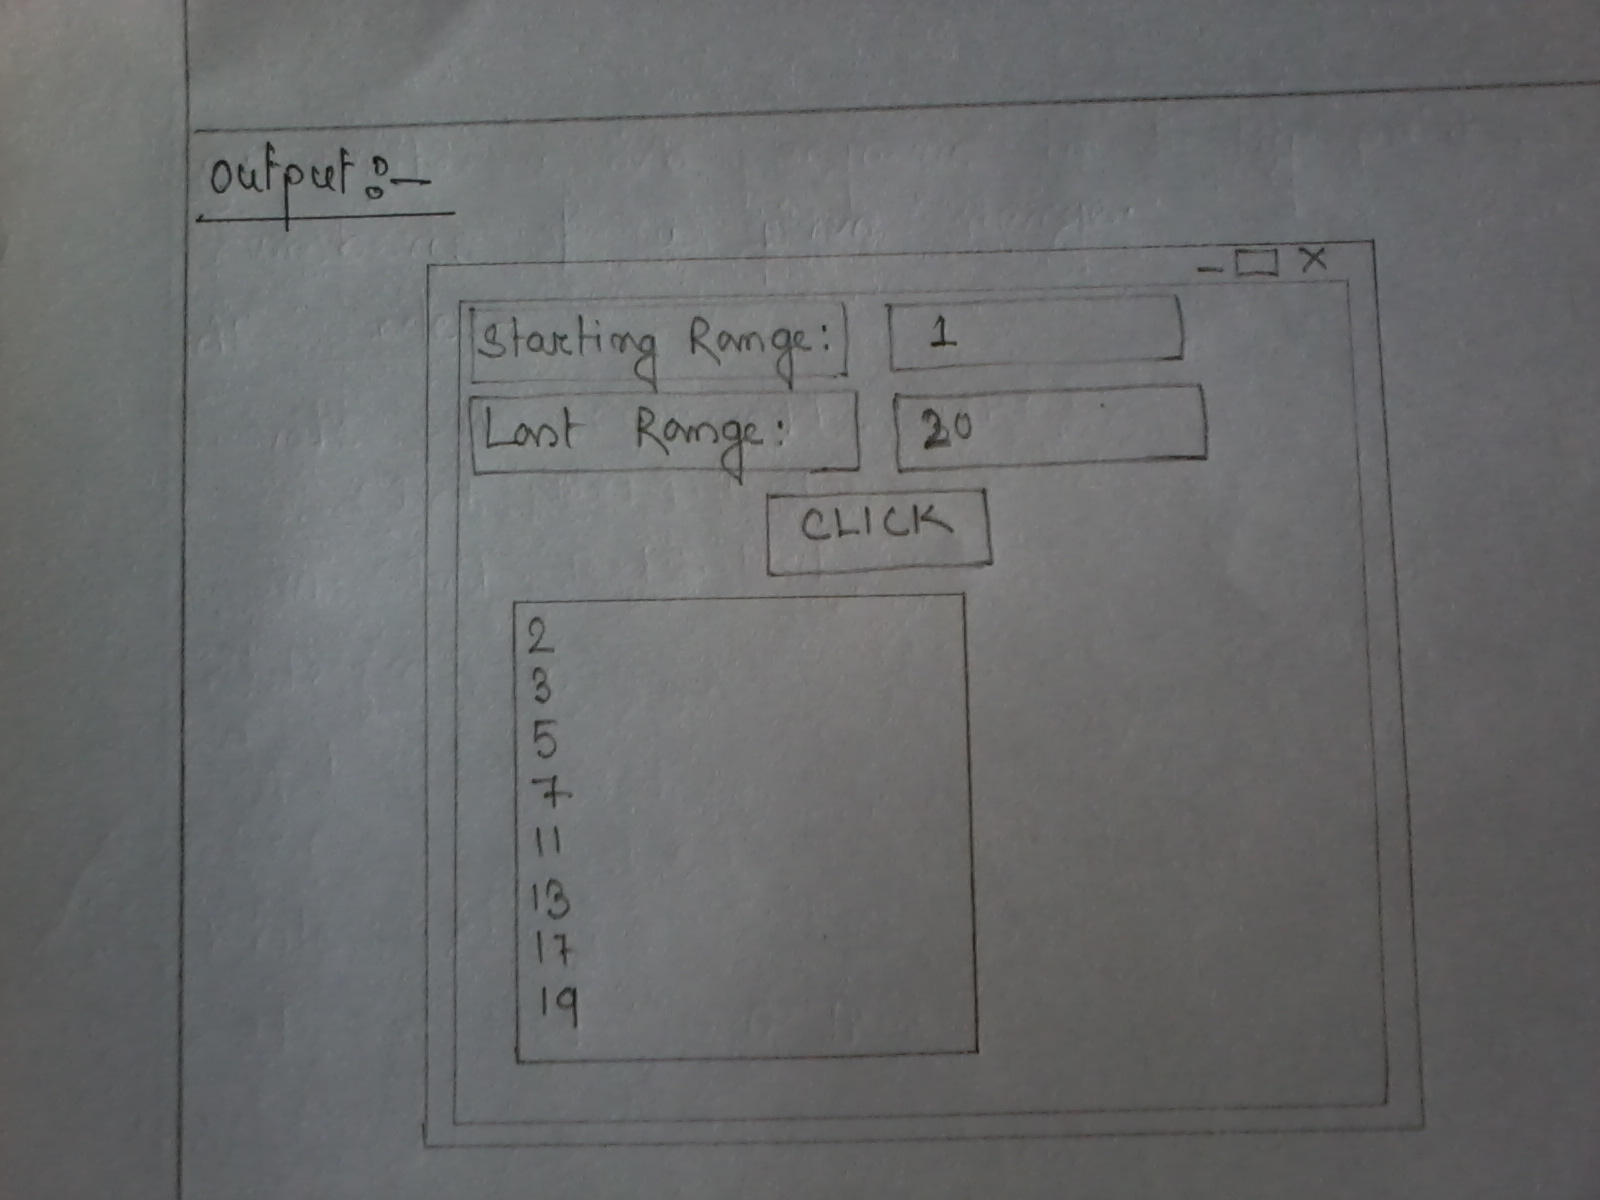 Output :-
Starting Range: 1
Last Range: 20
CLICK
2
3
5
7
11
13
17
19